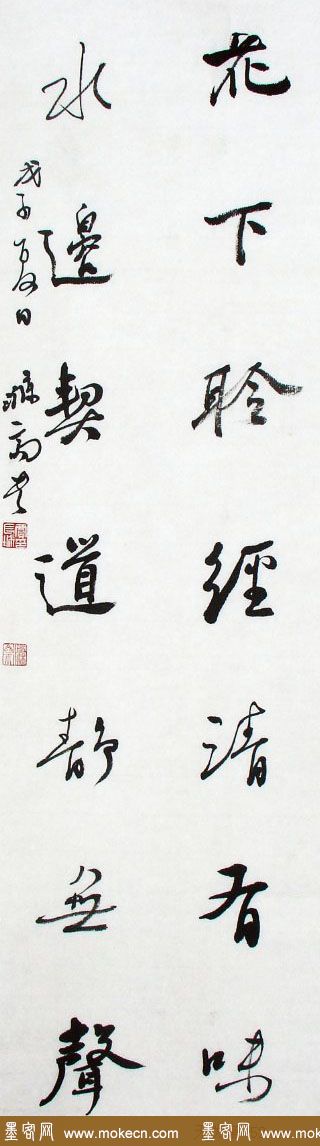 花下聆經清有味
水邊契道靜無聲
戊子夏日
墨客网 www.mokecn.com 墨客网